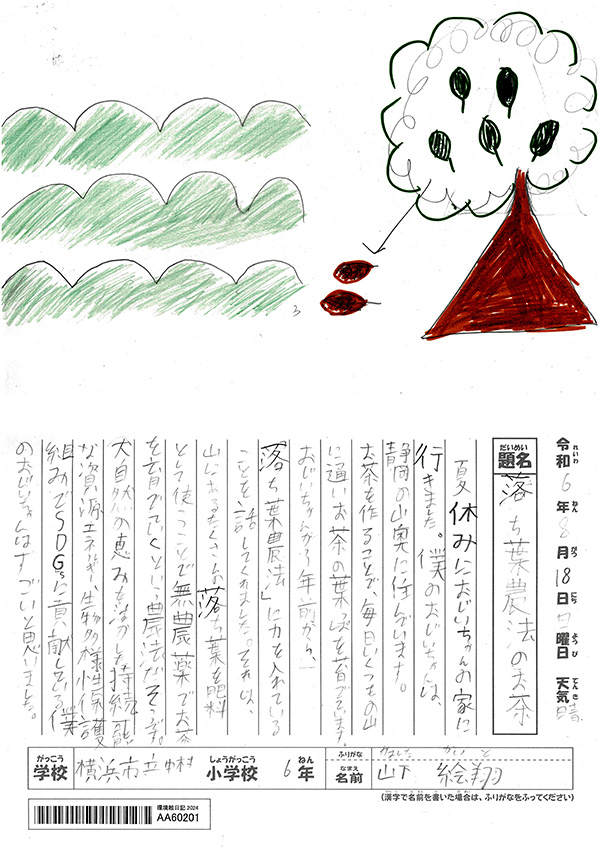 令和6年8月18日日曜日 天気 晴
れいわ ねん がつ にち ようび てんき
だいめい
題名 落ち葉農法のお茶
夏休みにおじいちゃんの家に
行きました。僕のおじいちゃんは、
静岡の山奥に住んでいます。
お茶を作ることで、毎日いくつもの山
に通いお茶の葉っぱを育てています。
おじいちゃんが3年前から、「
落ち葉農法」に力を入れている
ことを話してくれました。それは、
山にあるたくさんの落ち葉を肥料
として使うことで無農薬でお茶
を育てていくという農法だそうです。
大自然の恵みを活かした持続可能
な資源エネルギー、生物多様性保護
組みでSDGsに貢献している僕
のおじいちゃんはすごいと思いました。
がっこう しょうがっこう ねん ふりがな やました かいと
学校 横浜市立中村 小学校 6年 なまえ 名前 山下 絵翔
(漢字で名前を書いた場合は、ふりがなをふってください)
環境絵日記2024
AA60201